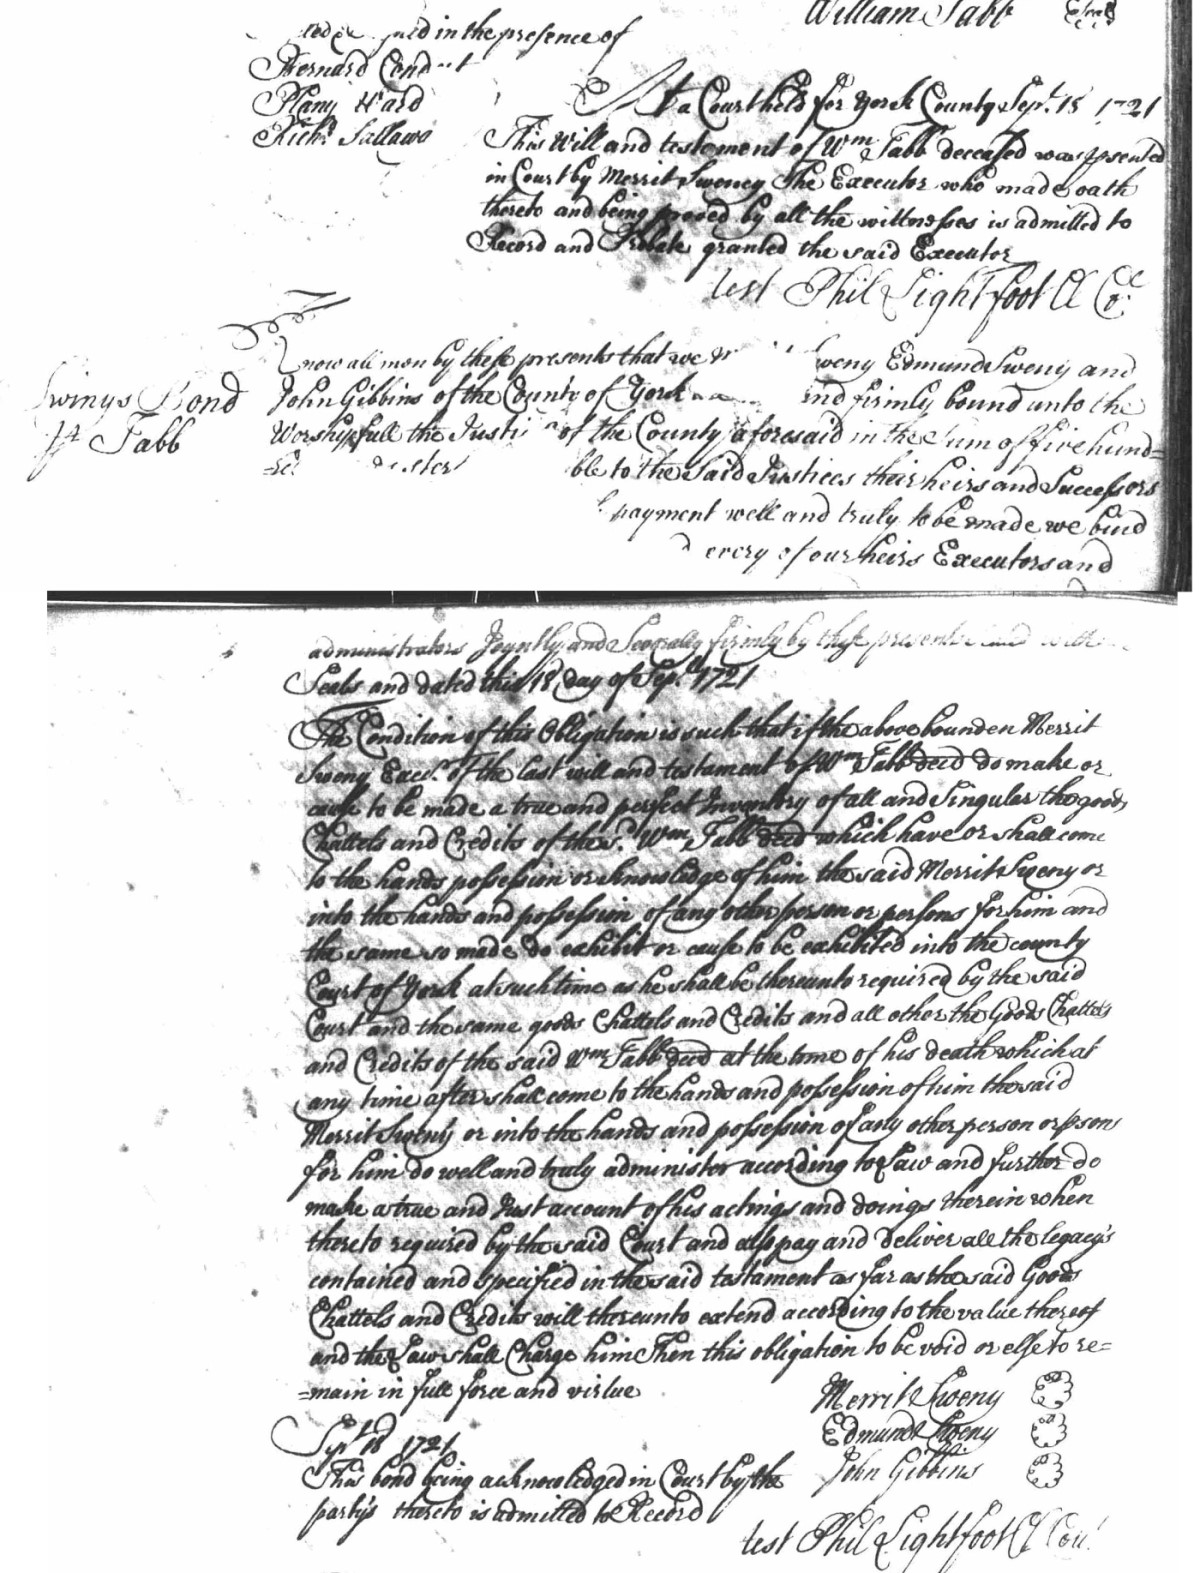 William Tabb
in the presence of
Bernard
Ward
At a Court held for York County Sept. 18 1721
This Will and testament of Wm Tabb deceased was psented
in Court by Merrit Sweney The Executor who made oath
thereto and being proved by all the wittnesses is admitted to
Record and Probate granted the said Executor
test Phil Lightfoot Cl Co:
Know all men by these presents that we Sweny Edmund Sweny and
Swinys Bond
John Gibbins of the County of York and firmly bound unto the
Tabb
Worshipfull the Justi of the County aforesaid in the Sum of five hund=
ble to the said Justices their heirs and Successors
payment well and truly to be made we bind
every of our heirs Executors and
administrators Joyntly and Severally firmly by these presents
Seals and dated this 18 day of Sept. 1721
The Condition of this Obligation is such that if the above bounden Merrit
Sweny Execr. of the last will and testament of Wm Tabb decd do make or
cause to be made a true and perfect Inventory of all and Singular the goods
Chattels and Credits of the sd. Wm Tabb decd which have or shall come
to the hands possession or knowledge of him the said Merrit Sweny or
into the hands and possession of any other person or persons for him and
the same so made do exhibit or cause to be exhibited into the county
Court of York at such time as he shall be thereunto required by the said
Court and the same goods Chattels and Credits and all other the Goods Chattels
and Credits of the said Wm Tabb decd at the time of his death which at
any time after shall come to the hands and possession of him the said
Merrit Sweny or into the hands and possession of any other person or psons
for him do well and truly administer according to Law and further do
make a true and Just account of his actings and doings therein when
thereto required by the said Court and also pay and deliver all the legacys
contained and specified in the said testament as far as the said Goods
Chattels and Credits will thereunto extend according to the value thereof
and the Law shall Charge him Then this obligation to be void or else to re=
=main in full force and virtue
Merrit Sweny
Edmund Sweny
John Gibbins
Sept 18 1721
This bond being acknowledged in Court by the
partys thereto is admitted to Record
test Phil Lightfoot Cl Cou